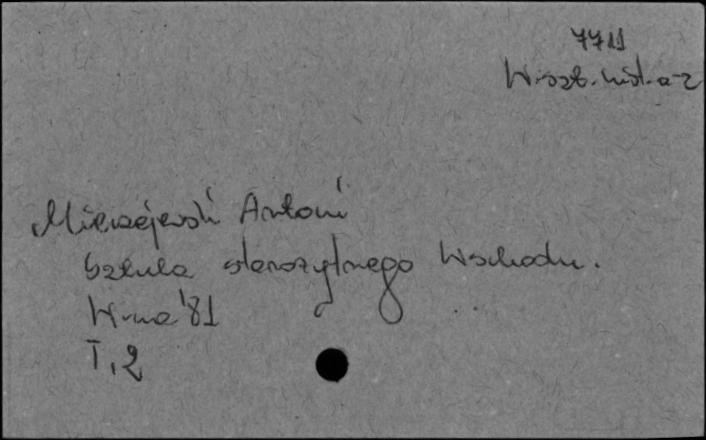 7711
W. szt. hist. a-z
Mierzejewski Antoni
Sztuka starożytnego Wschodu.
W-wa '81
T. 2